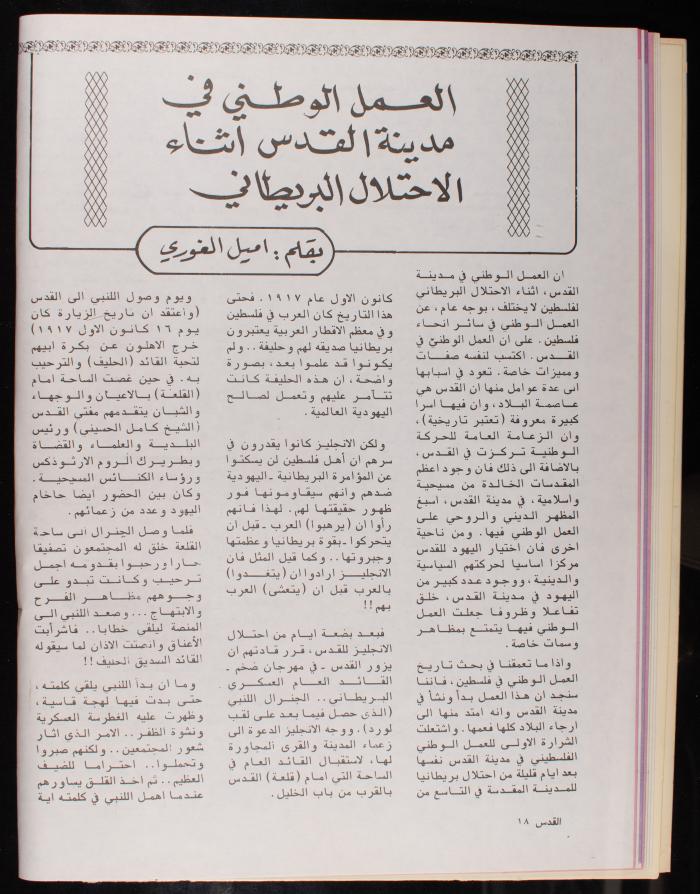 العمل الوطني في
مدينة القدس اثناء
الاحتلال البريطاني
بقلم: اميل الغوري
ان العمل الوطني في مدينة
القدس، اثناء الاحتلال البريطاني
لفلسطين لا يختلف، بوجه عام، عن
العمل الوطني في سائر انحاء
فلسطين. على ان العمل الوطني في
القدس. اكتسب لنفسه صفات
ومميزات خاصة. تعود في اسبابها
الى عدة عوامل منها ان القدس هي
عاصمة البلاد، وان فيها اسرا
كبيرة معروفة (تعتبر تاريخية)،
وان الزعامة العامة للحركة
الوطنية تركزت في القدس،
بالاضافة الى ذلك فان وجود اعظم
المقدسات الخالدة من مسيحية
واسلامية، في مدينة القدس، اسبغ
المظهر الديني والروحي على
العمل الوطني فيها. ومن ناحية
اخرى فان اختيار اليهود للقدس
مركزا اساسيا لحركتهم السياسية
والدينية، ووجود عدد كبير من
اليهود في مدينة القدس، خلق
تفاعلا وظروفا جعلت العمل
الوطني فيها يتمتع بمظاهر
وسمات خاصة.
واذا ما تعمقنا في بحث تاريخ
العمل الوطني في فلسطين، فاننا
سنجد ان هذا العمل بدأ ونشأ في
مدينة القدس وانه امتد منها الى
ارجاء البلاد كلها فعمها. واشتعلت
الشرارة الاولى للعمل الوطني
الفلسطيني في مدينة القدس نفسها
بعد ايام قليلة من احتلال بريطانيا
للمدينة المقدسة في التاسع من
كانون الاول عام ١٩١٧. فحتى
هذا التاريخ كان العرب في فلسطين
وفي معظم الاقطار العربية يعتبرون
بريطانيا صديقه لهم وحليفة.. ولم
يكونوا قد علموا بعد، بصورة
واضحة، ان هذه الحليفة كانت
تتآمر عليهم وتعمل لصالح
اليهودية العالمية.
ولكن الانجليز كانوا يقدرون في
سرهم ان أهل فلسطين لن يسكتوا
عن المؤامرة البريطانية ـ اليهودية
ضدهم وانهم سيقاومونها فور
ظهور حقيقتها لهم. لهذا فانهم
رأوا ان (يرهبوا) العرب ـ قبل ان
يتحركوا ـ بقوة بريطانيا وعظمتها
وجبروتها.. وكما قيل المثل فان
الانجليز ارادوا ان (يتغدوا)
بالعرب قبل ان (يتعشى) العرب
بهم!!
فبعد بضعة ايام من احتلال
الانجليز للقدس، قرر قادتهم ان
يزور القدس ـ في مهرجان ضخم ـ
القائد العام العسكري
البريطاني.. الجنرال اللنبي
(الذي حصل فيما بعد على لقب
لورد). ووجه الانجليز الدعوة الى
زعماء المدينة والقرى المجاورة
لها، لاستقبال القائد العام في
الساحة التي امام (قلعة) القدس
بالقرب من باب الخليل.
ويوم وصول اللنبي الى القدس
(واعتقد ان تاريخ الزيارة كان
يوم ١٦ كانون الاول ١٩١٧)
خرج الاهلون عن بكرة ابيهم
لتحية القائد (الحليف) والترحيب
به. في حين غصت الساحة امام
(القلعة) بالاعيان والوجهاء
والشبان يتقدمهم مفتي القدس
(الشيخ كامل الحسيني) ورئيس
البلدية والعلماء والقضاة
وبطريرك الروم الارثوذكس
ورؤساء الكنائس المسيحية.
وكان بين الحضور ايضا حاخام
اليهود وعدد من زعمائهم.
فلما وصل الجنرال الى ساحة
القلعة خلق له المجتمعون تصفيقا
حارا ورحبوا بقدومه اجمل
ترحيب وكانت تبدو على
وجوههم مظاهر الفرح
والابتهاج... وصعد اللنبي الى
المنصة ليلقى خطابا.. فاشرأبت
الأعناق وانصتت الاذان لما سيقوله
القائد السديق الحنيف!!
وما ان بدأ اللنبي يلقي كلمته،
حتى بدت فيها لهجة قاسية،
وظهرت عليه الغطرسة العسكرية
ونشوة الظفر.. الامر الذي اثار
شعور المجتمعين.. ولكنهم صبروا
وتحملوا.. احتراما للضيف
العظيم.. ثم اخذ القلق يساورهم
عندما اهمل اللنبي في كلمته اية
القدس ١٨